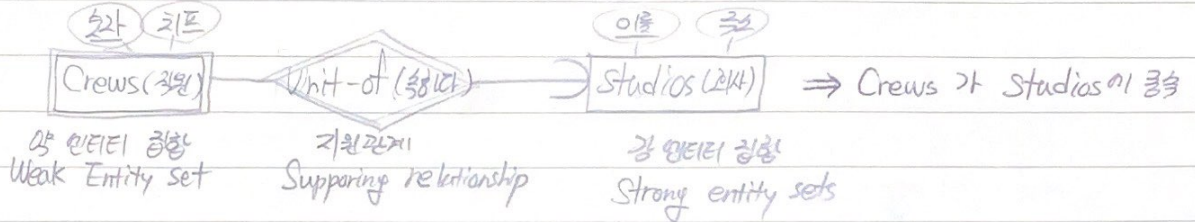 숫자 치프 이름 주소
Crews(직원) Unit-of (속하다) Studios(회사) ⇒ Crews 가 Studios에 종속
약 엔티티 집합 지원관계 강 엔티티 집합
Weak Entity set Supporing relationship Strong entity sets